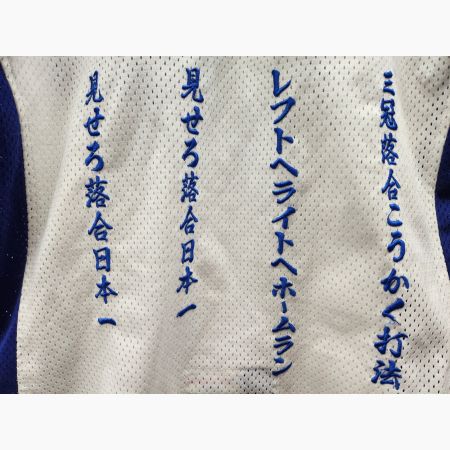 三冠落合こうかく打法
レフトヘライトヘホームラン
見せろ落合日本一
見せろ落合日本一